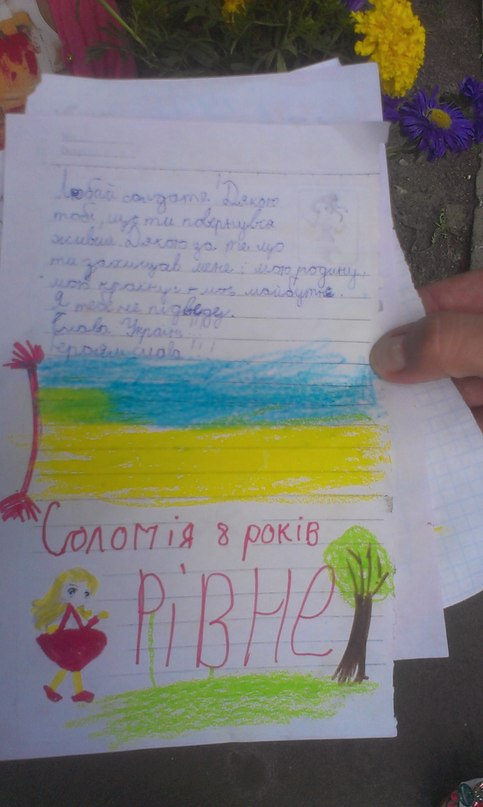 Любий солдате! Дякую
тобі, що ти повернувся
живий. Дякую за те що
ти захищав мене і мою родину,
мою країну і моє майбутнє.
Я тебе не підведу.
Слава Україні!!!
Героям слава!!!
Соломія 8 років
Рівне